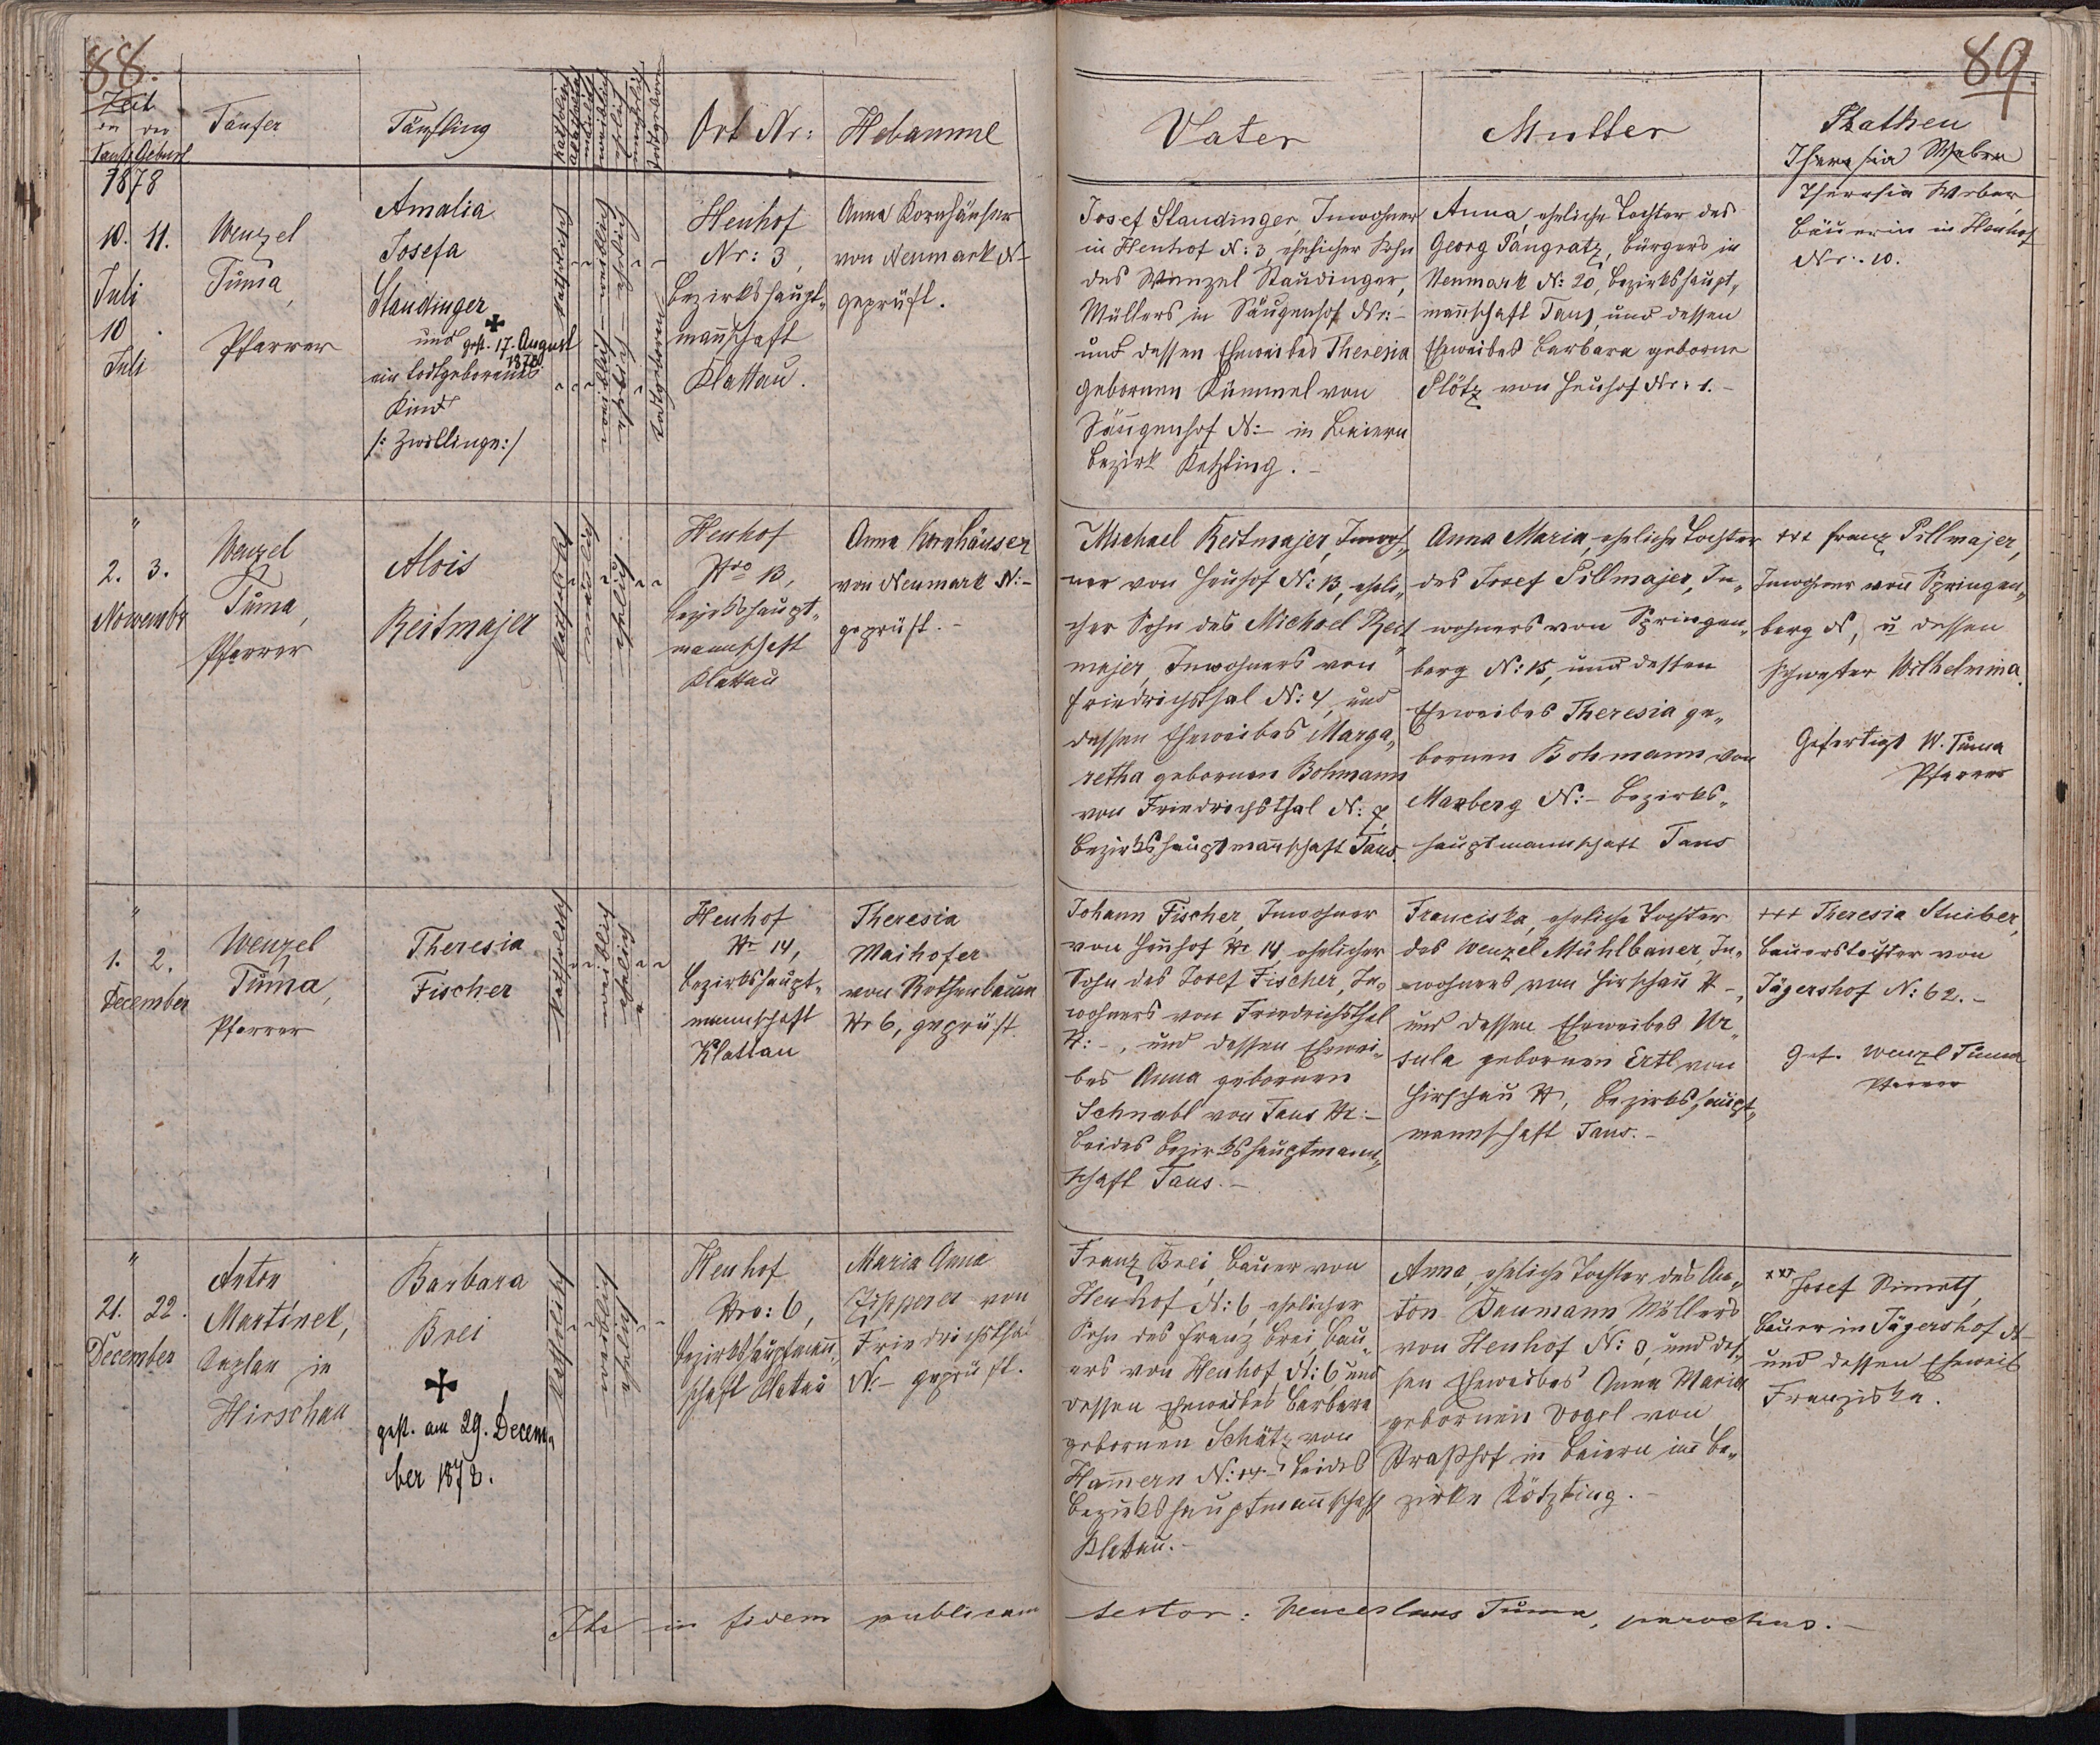 88.
89.
Zeit
der der
Taufe Geburt
Taufer
Täufling
katholisch
akatholisch
männlich
weiblich
ehelich
unehelich
todtgeboren
Ort Nr:
Hebamme
Vater
Mutter
Pathen
Theresia Weber
1878
10. 11.
Juli
10
Juli
Wenzel
Tuma,
Pfarrer
Amalia
Josefa
Staudinger
und gest. 17. August
1878
ein todtgeborenes
Kind
/: Zwillinge:/
katholisch
weiblich
ehelich
todtgeboren
Heuhof
Nr: 3,
Bezirkshaupt-
mannschaft
Klattau.
Anna Kornhäuser
von Neumark N-
geprüft.
Josef Staudinger, Inwohner
in Heuhof N: 3, ehelicher Sohn
des Wenzel Staudinger,
Müllers in Säugenhof Nr: -
und dessen Eheweibes Theresia
gebornen Kümmel von
Säugenhof N: - in Baiern
Bezirk Kötzting. -
Anna, eheliche Tochter des
Georg Pangratz, Bürgers in
Neumark N: 20, Bezirkshaupt-
mannschaft Taus, und dessen
Eheweibes Barbara geborne
Plötz von Heuhof Nr: 1. -
Theresia Weber,
Bäuerin in Heuhof
Nr. 10.
"
2. 3.
November
Wenzel
Tuma,
Pfarrer
Alois
Reitmajer
katholisch
männlich
ehelich
Heuhof
Nro 13,
Bezirkshaupt-
mannschaft
Klattau
Anna Kornhäuser
von Neumark N: -
geprüft. -
Michael Reitmajer, Inwoh-
ner von Heuhof N: 13, eheli-
cher Sohn des Michael Reit
majer, Inwohners von
Friedrichsthal N: 7, und
dessen Eheweibes Marga-
retha gebornen Bohmann
von Friedrichsthal N: 7,
Bezirkshauptmannschaft Taus.
Anna Maria, eheliche Tochter
des Josef Pillmajer, In-
wohners von Springen-
berg N: 15, und dessen
Eheweibes Theresia ge-
bornen Bohmann von
Maxberg N: - Bezirks-
hauptmannschaft Taus
+++ Franz Pillmajer,
Inwohner von Springen-
berg N, u dessen
Schwester Wilhelmina.
Gefertigt W. Tuma
Pfarrer
"
1. 2.
December
Wenzel
Tuma,
Pfarrer
Theresia
Fischer
katholisch
weiblich
ehelich
Heuhof
Nr 14,
Bezirkshaupt-
mannschaft
Klattau
Theresia
Maihofer
von Rothenbaum
Nr 6, geprüft.
Johann Fischer, Inwohner
von Heuhof Nr 14, ehelicher
Sohn des Josef Fischer, In-
wohners von Friedrichsthal
N: -, und dessen Ehewei-
bes Anna gebornen
Schnabl von Taus Nr: -
beides Bezirkshauptmann-
schaft Taus. -
Franciska, eheliche Tochter
des Wenzel Mühlbauer, In-
wohners von Hirschau N -,
und dessen Eheweibes Ur-
sula gebornen Ertl von
Hirschau N, Bezirkshaupt-
mannschaft Taus. -
+++ Theresia Stuiber,
Bauerstochter von
Jägershof N: 62. -
Gef. Wenzl Tuma
Pfarrer
"
21. 22.
December
Anton
Martinek,
Kaplan in
Hirschau
Barbara
Brei
gest. am 29. Decem-
ber 1878.
katholisch
weiblich
ehelich
Heuhof
Nro: 6,
Bezirkshauptmann-
schaft Klatau
Maria Anna
von
Friedrichsthal
N. - geprüft.
Franz Brei, Bauer von
Heuhof N: 6, ehelicher
Sohn des Franz Brei, Bau-
ers von Heuhof N: 6 und
dessen Eheweibes Barbara
gebornen Schätz von
Hammern N: 14 - beides
Bezirkshauptmannschaft
Klattau. -
Anna, eheliche Tochter des An-
ton Baumann, Müllers
von Heuhof N: 8, und des-
sen Eheweibes Anna Maria
gebornen Vogel von
Straßhof in Baiern im Be-
zirke Kötzting. -
xxx Josef
Bauer in Jägershof N
und dessen Eheweib
Franziska.
in fidem publicam testor: Venceslaus Tuma, parochus. -